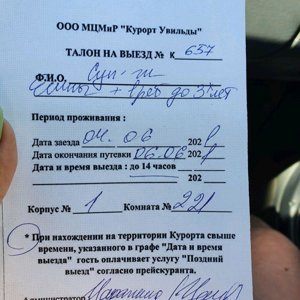 ООО МЦМиР "Курорт Увильды"
ТАЛОН НА ВЫЕЗД № К 657
Ф.И.О.
+ до 3х лет
Период проживания :
Дата заезда 04.06 2021
Дата окончания путевки 06.06 2021
Дата и время выезда : до 14 часов
202
Корпус № 1 Комната № 221
* При нахождении на территории Курорта свыше
времени, указанного в графе "Дата и время
выезда" гость оплачивает услугу "Поздний
выезд" согласно прейскуранта.
Администратор